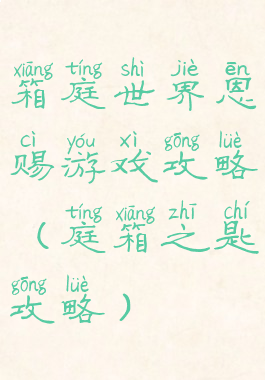 xiāng tíng shì jiè ēn
箱庭世界恩
cì yóu xì gōng lüè
赐游戏攻略
tíng xiāng zhī chí
（庭箱之匙
gōng lüè
攻略）